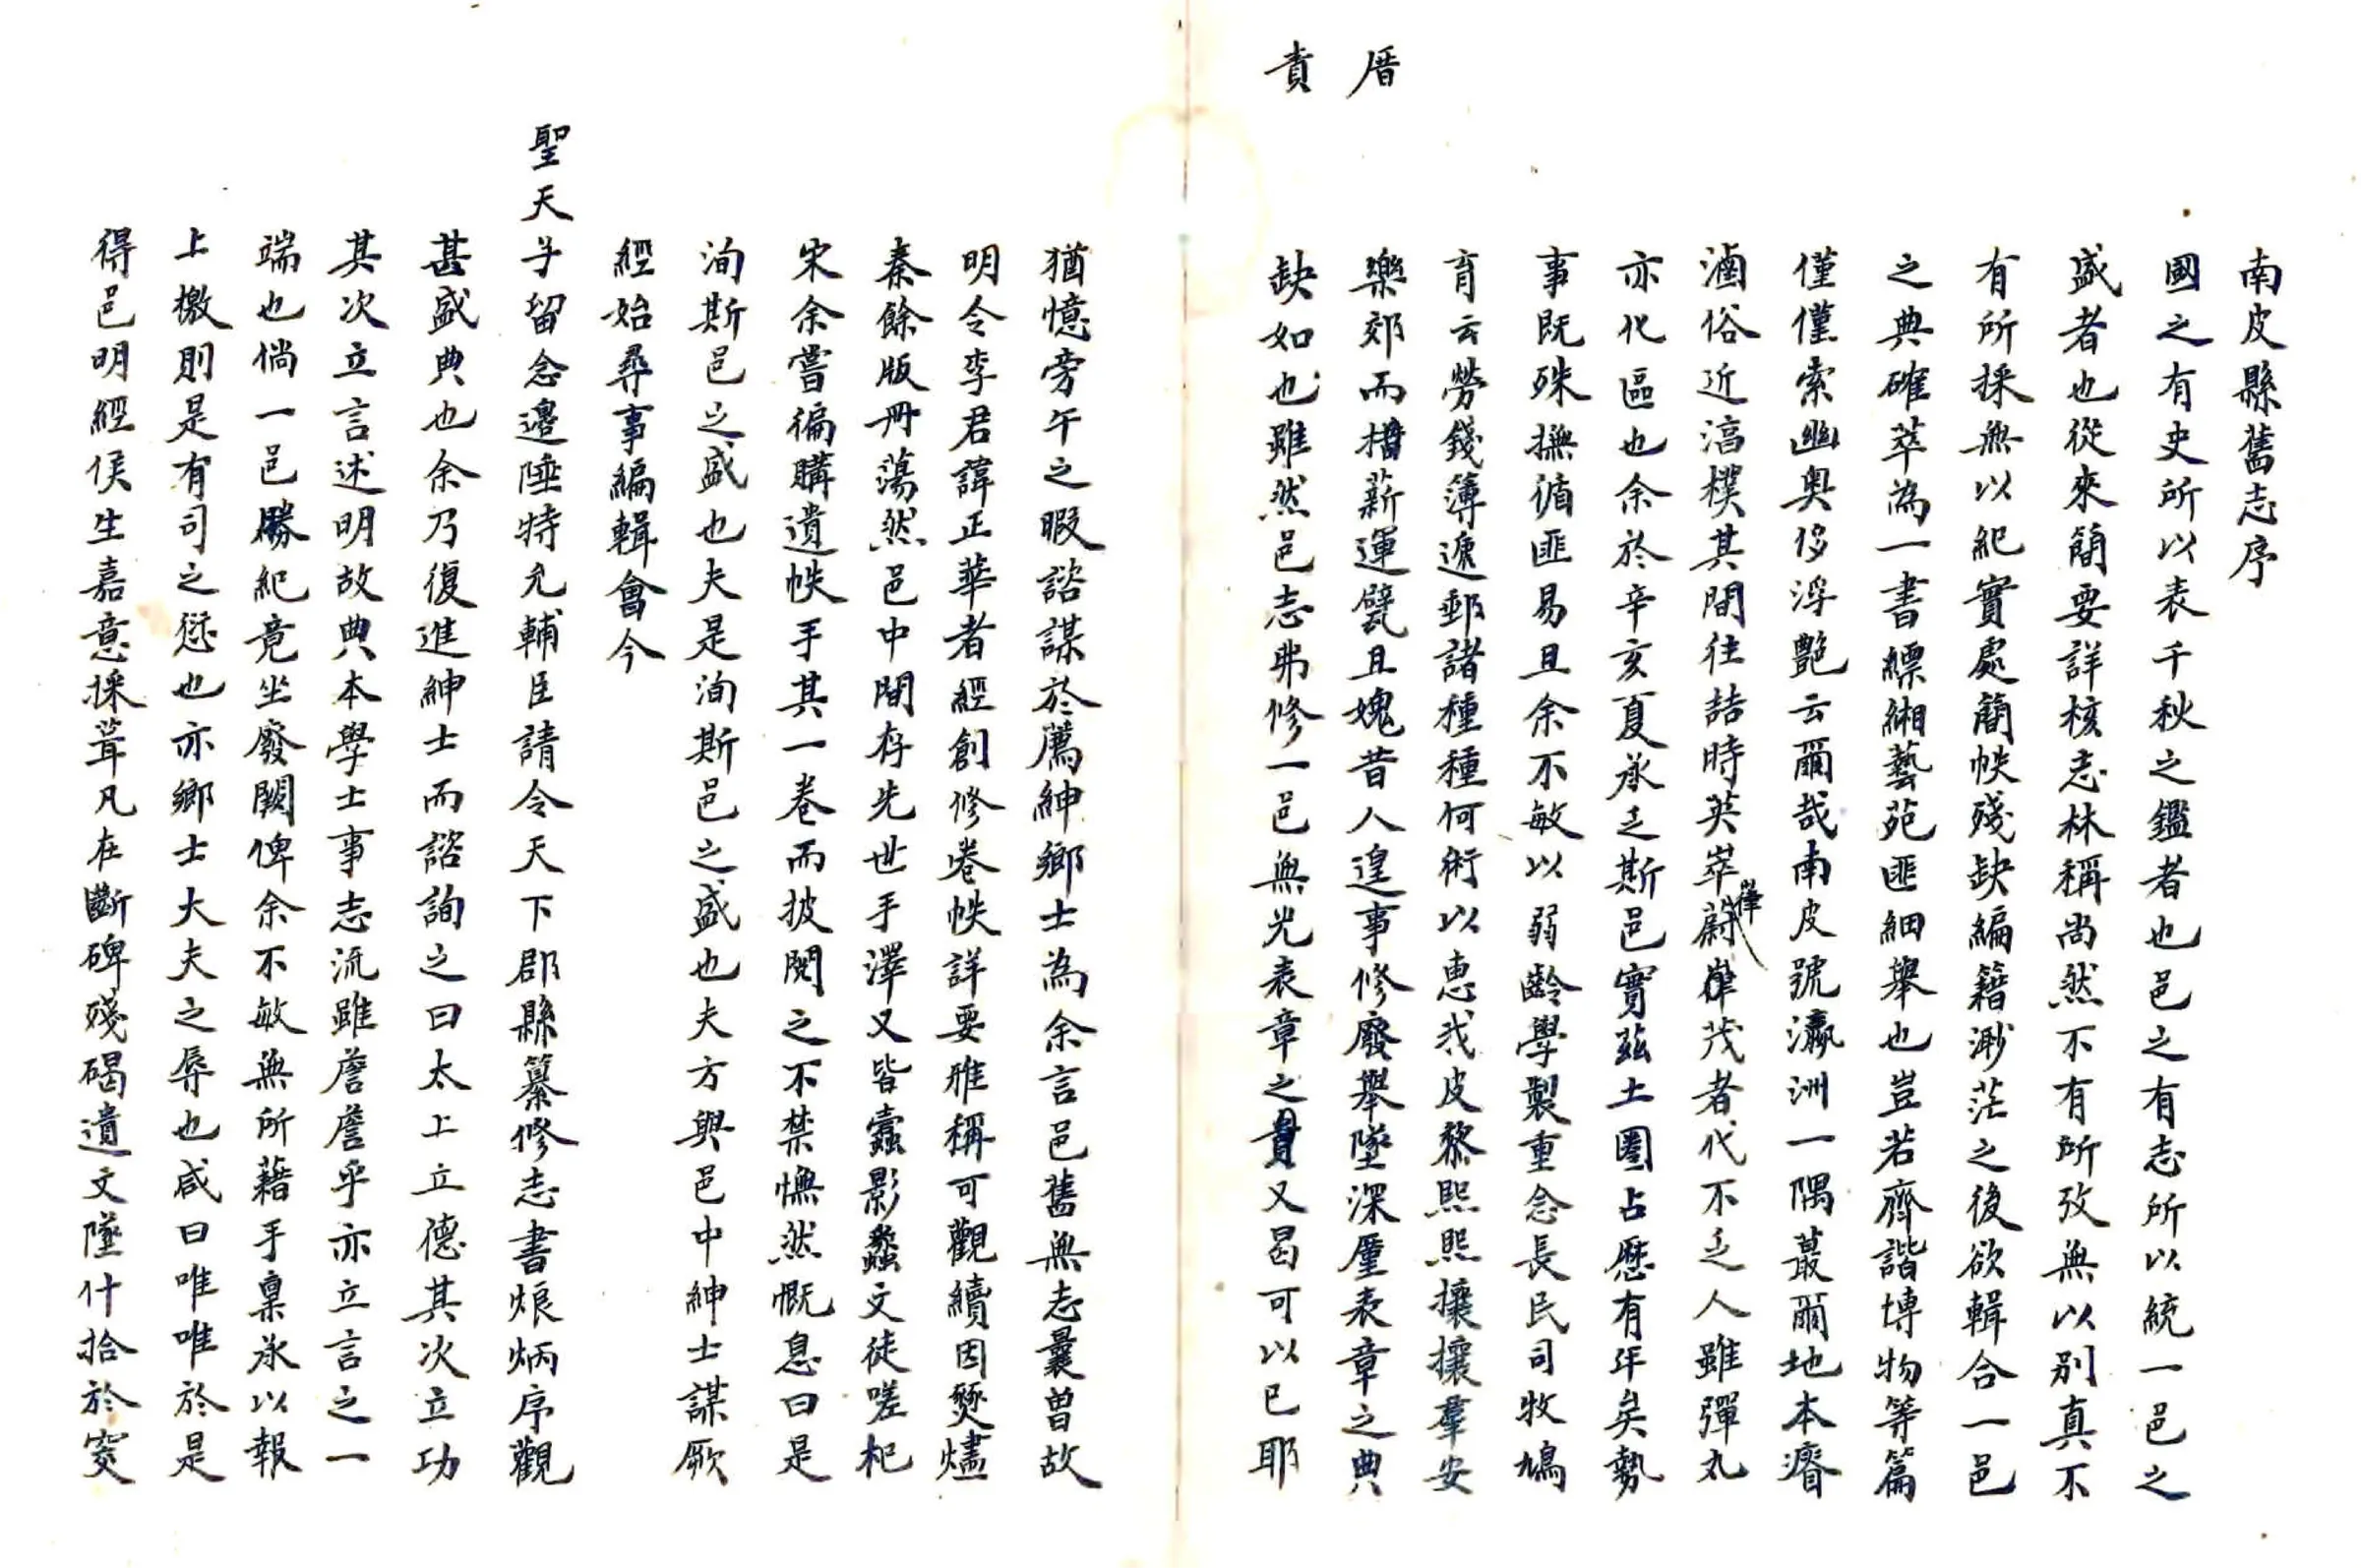 厝
責
南皮縣舊志序
國之有史所以表千秋之鑑者也邑之有志所以統一邑之
盛者也從來簡要詳核志林稱尚然不有所攷無以别真不
有所採無以紀實處簡帙殘缺編籍渺茫之後欲輯合一邑
之典確萃為一書縹緗藝苑匪細舉也豈若齊諧博物等篇
僅僅索幽奥侈浮艷云爾哉南皮號瀛洲一隅蕞爾地本瘠
滷俗近湻樸其間往喆時英崒蔚葎茂者代不乏人雖彈丸
亦化區也余於辛亥夏承乏斯邑實茲土圉占歷有年矣勢
事既殊撫循匪易且余不敏以弱齡學製重念長民司牧鳩
育云勞錢簿遞郵諸種種何術以惠我皮黎熙熙攘攘羣安
樂郊而措薪運甓且媿昔人遑事修廢舉墜深厪表章之典
缺如也雖然邑志弗修一邑無光表章之責又曷可以已耶
猶憶旁午之暇諮謀於薦紳鄉士為余言邑舊無志曩曾故
明令李君諱正華者經創修卷帙詳要雅稱可觀續因燹燼
秦餘版冊蕩然邑中間存先世手澤又皆蠹影蟸文徒嗟杞
宋余嘗徧購遺帙手其一卷而披閱之不禁憮然慨息曰是
洵斯邑之盛也夫是洵斯邑之盛也夫方與邑中紳士謀厥
經始尋事編輯會今
聖天子留念邊陲特允輔臣請令天下郡縣纂修志書烺炳序觀
甚盛典也余乃復進紳士而諮詢之曰太上立德其次立功
其次立言述明故典本學士事志流雖詹詹乎亦立言之一
端也倘一邑勝紀竟坐廢闕俾余不敏無所藉手稟承以報
上檄則是有司之愆也亦鄉士大夫之辱也咸曰唯唯於是
得邑明經侯生嘉意採葺凡在斷碑殘碣遺文墜什拾於窔